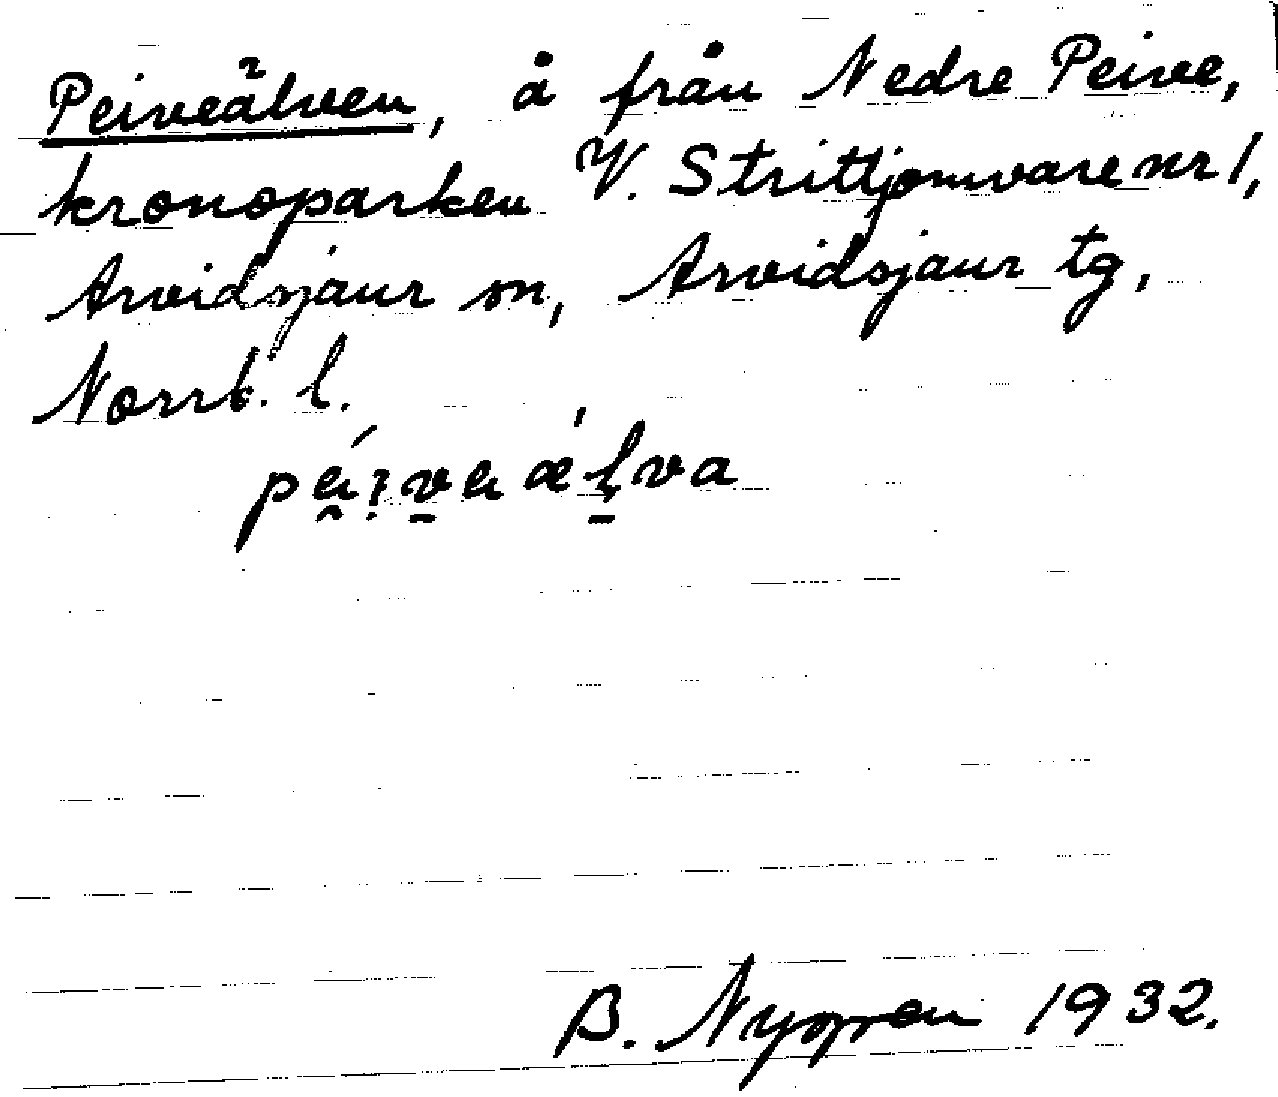 Peiveälven, å från Nedre Peive,
kronoparken V. Strittjomvare nr 1,
Arvidsjaur sn, Arvidsjaur tg,
Norrb. l.
B. Nygren 1932.